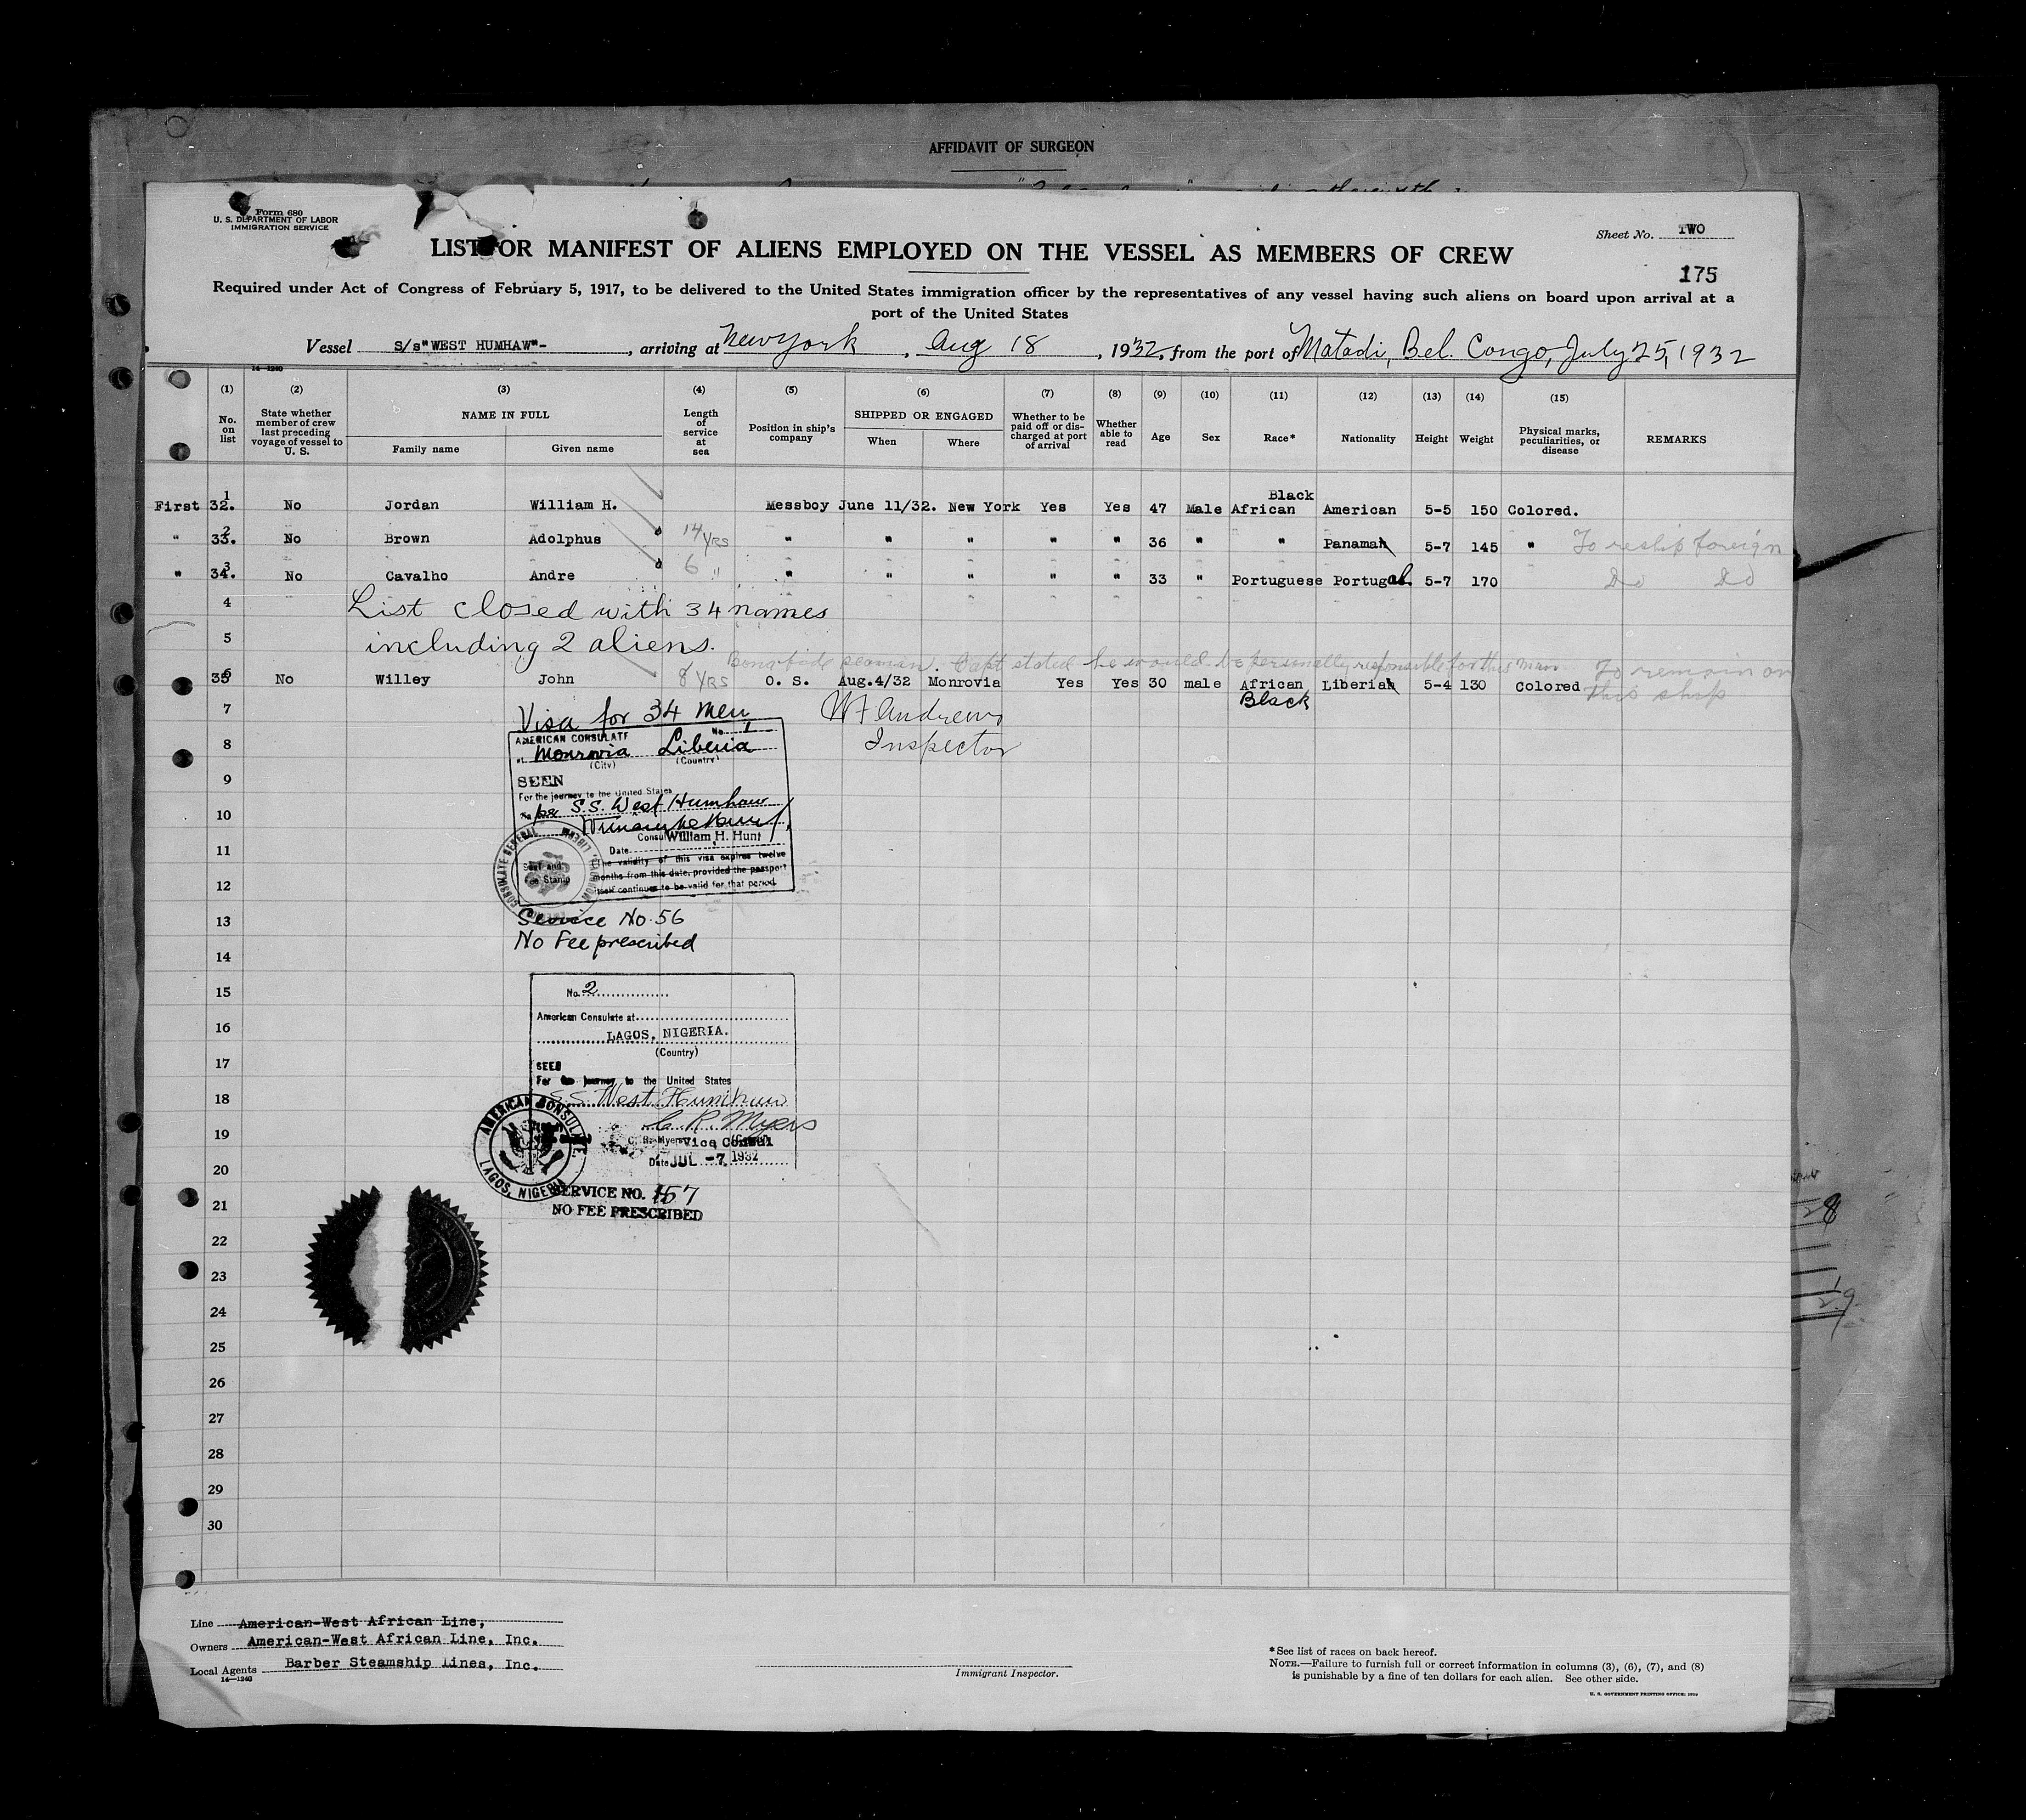 AFFIDAVIT OF SURGEON
Form 680
U. S. DEPARTMENT OF LABOR
IMMIGRATION SERVICE
Sheet No. TWO
LIST OR MANIFEST OF ALIENS EMPLOYED ON THE VESSEL AS MEMBERS OF CREW
175
Required under Act of Congress of February 5, 1917, to be delivered to the United States immigration officer by the representatives of any vessel having such aliens on board upon arrival at a
port of the United States
Vessel S/s"WEST HUMHAW"- , arriving at New York , Aug 18 , 1932, from the port of Matadi, Bel. Congo, July 25, 1932
14—1240
(1) (2) (3) (4) (5) (6) (7) (8) (9) (10) (11) (12) (13) (14) (15)
No. on list State whether member of crew last preceding voyage of vessel to U. S. NAME IN FULL Family name Given name Length of service at sea Position in ship's company SHIPPED OR ENGAGED When Where Whether to be paid off or discharged at port of arrival Whether able to read Age Sex Race* Nationality Height Weight Physical marks, peculiarities, or disease REMARKS
First 1 32. No Jordan William H. Messboy June 11/32. New York Yes Yes 47 Male Black African American 5-5 150 Colored.
" 2 33. No Brown Adolphus 14 YRS " " " " " 36 " " Panaman 5-7 145 " To reship foreign
" 3 34. No Cavalho Andre 6 " " " " " " 33 " Portuguese Portugal. 5-7 170 Do Do
4 List closed with 34 names
5 including 2 aliens.
Bonafide seaman. Capt stated he would be personally responsible for this man. To remain on
6 35 No Willey John 8 YRS O. S. Aug.4/32 Monrovia Yes Yes 30 male African Liberian 5-4 130 Colored this ship
Black
7 Visa for 34 men W Andrews
8 Inspector
AMERICAN CONSULATE No. 1
at Monrovia Liberia
(City) (Country)
9 SEEN
For the journey to the United States
10 S.S. West Humhaw
Consul William H. Hunt
11 Date
The validity of this visa expires twelve
months from this date, provided the passport
12 itself continues to be valid for that period.
13 Service No. 56
No Fee prescribed
14
15 No. 2
American Consulate at
16 LAGOS, NIGERIA.
(Country)
17 SEEN
For the journey to the United States
18 S.S. West Humhaw
C. R. Myers
19 C. R. Myers Vice Consul
Date JUL -7 1932
AMERICAN CONSULATE. LAGOS, NIGERIA
20
SERVICE NO. 157
21 NO FEE PRESCRIBED
22
23
24
25
26
27
28
29
30
28
29
Line American-West African Line,
Owners American-West African Line, Inc.
Local Agents Barber Steamship Lines, Inc.
14—1240
Immigrant Inspector.
*See list of races on back hereof.
NOTE.—Failure to furnish full or correct information in columns (3), (6), (7), and (8)
is punishable by a fine of ten dollars for each alien. See other side.
U. S. GOVERNMENT PRINTING OFFICE: